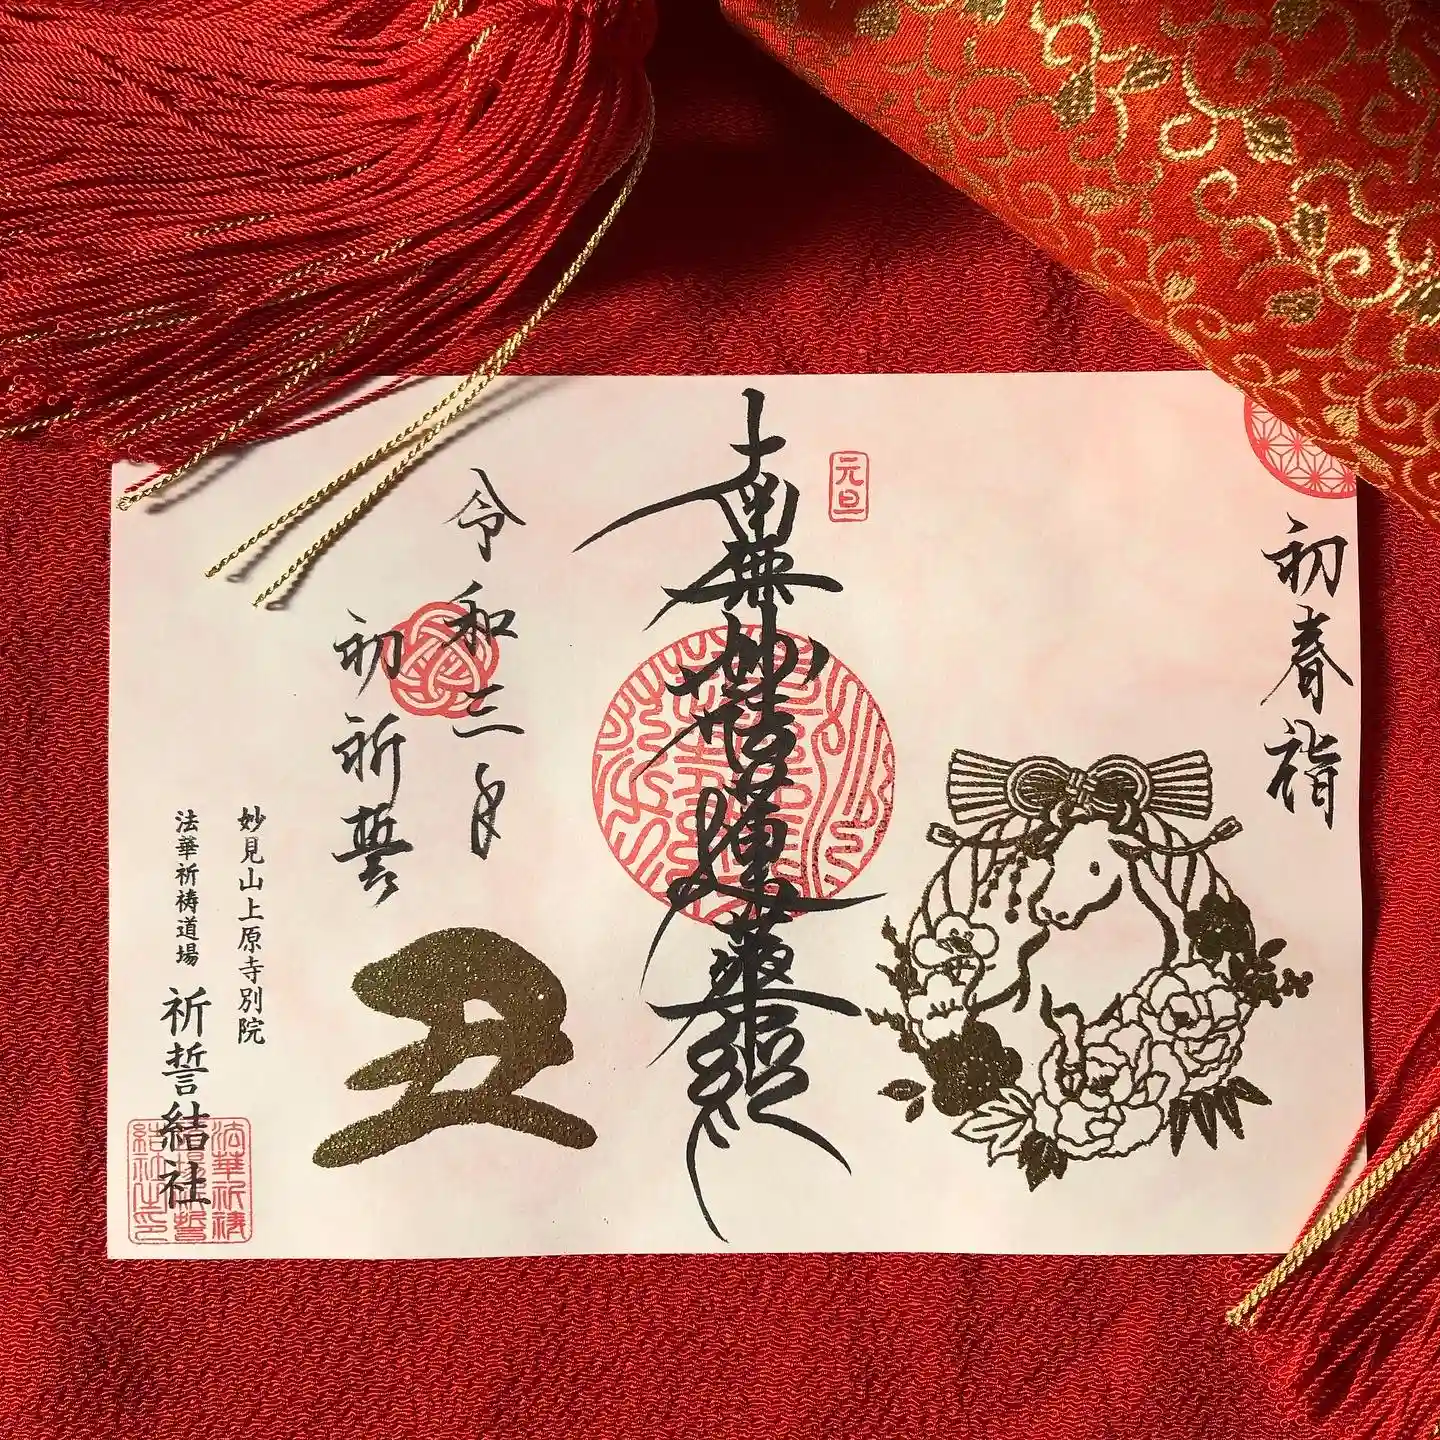 初春詣
元旦
南無妙法蓮華経
令和三年
初祈誓
丑
妙見山上原寺別院
法華祈祷道場
祈誓結社
法華祈祷
結社之印